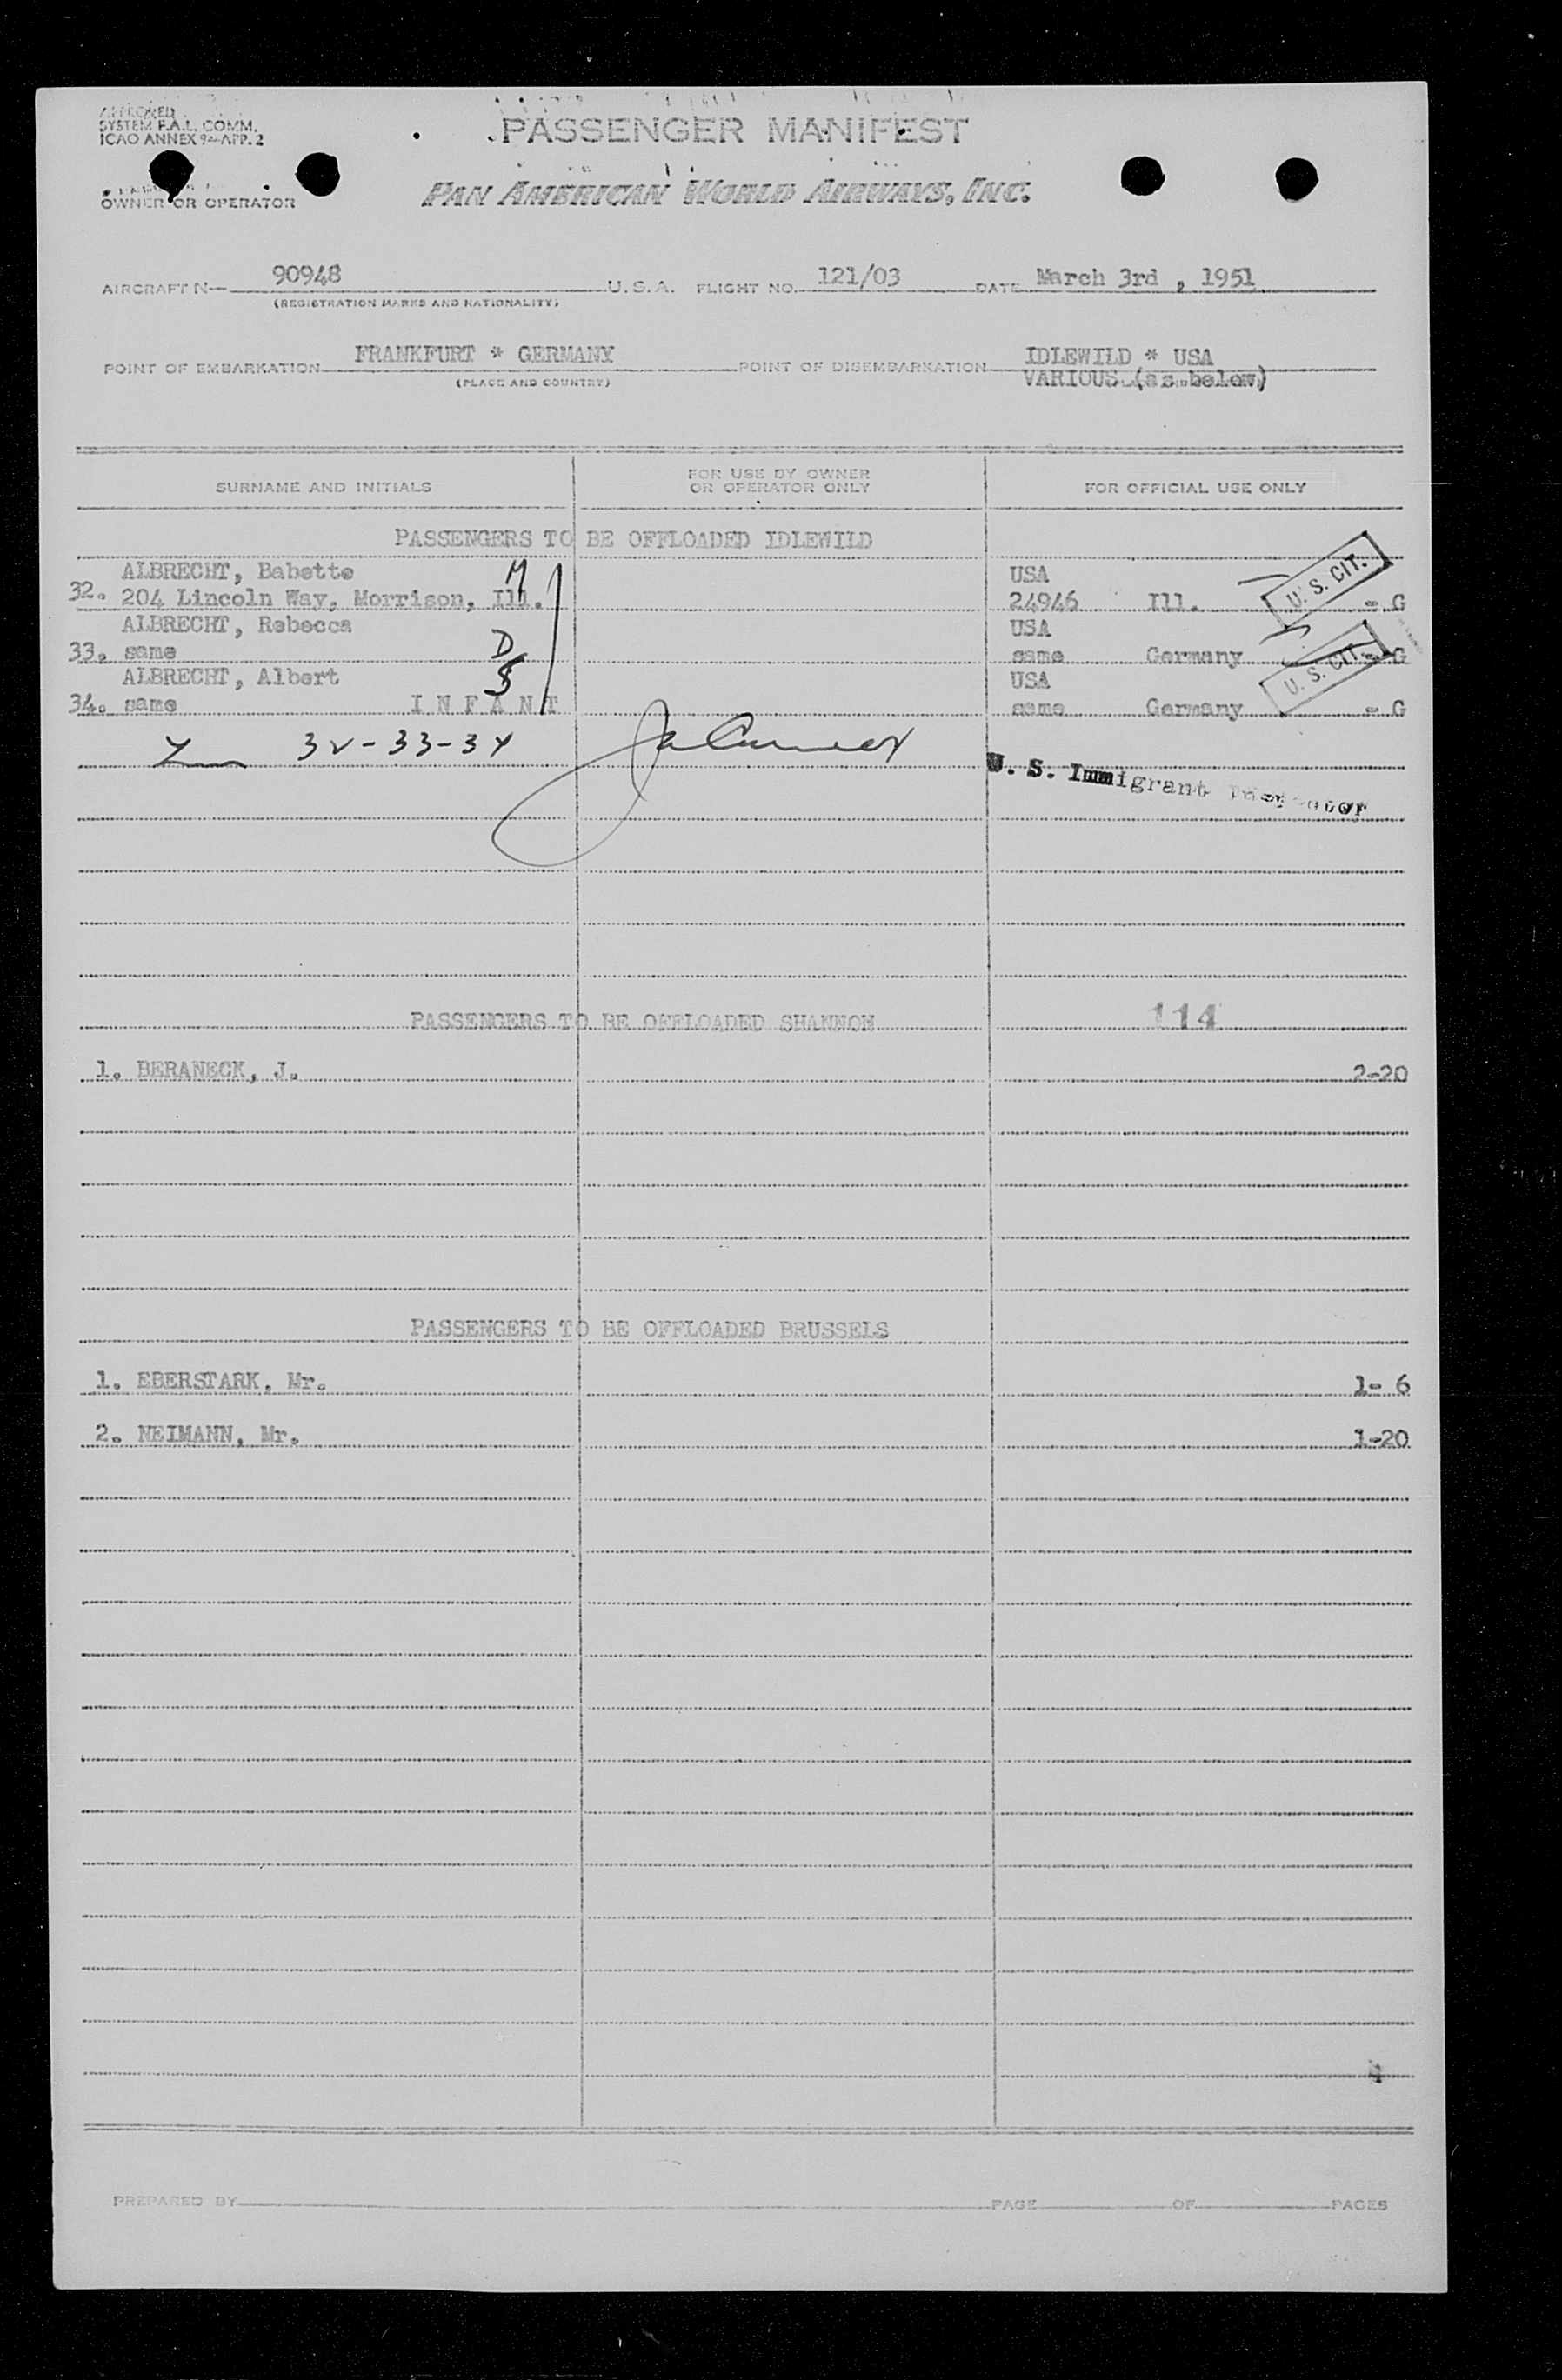 APPROVED
SYSTEM F.A.L. COMM.
ICAO ANNEX 9-APP. 2
PASSENGER MANIFEST
OWNER OR OPERATOR
PAN AMERICAN WORLD AIRWAYS, INC.
AIRCRAFT N— 90948 U. S. A. FLIGHT NO. 121/03 DATE March 3rd , 1951
(REGISTRATION MARKS AND NATIONALITY)
POINT OF EMBARKATION FRANKFURT * GERMANY POINT OF DISEMBARKATION IDLEWILD * USA
(PLACE AND COUNTRY) VARIOUS (as below)
SURNAME AND INITIALS FOR USE BY OWNER OR OPERATOR ONLY FOR OFFICIAL USE ONLY
PASSENGERS TO BE OFFLOADED IDLEWILD
ALBRECHT, Babette M USA U. S. CIT.
32. 204 Lincoln Way, Morrison, Ill. 24946 Ill. - G
ALBRECHT, Rebecca USA
33. same D same Germany - G
ALBRECHT, Albert S USA U. S. CIT.
34. same INFANT same Germany - G
32-33-34
U. S. Immigrant Inspector
PASSENGERS TO BE OFFLOADED SHANNON 114
1. BERANECK, J. 2-20
PASSENGERS TO BE OFFLOADED BRUSSELS
1. EBERSTARK, Mr. 1- 6
2. NEIMANN, Mr. 1-20
4
PREPARED BY PAGE OF PAGES